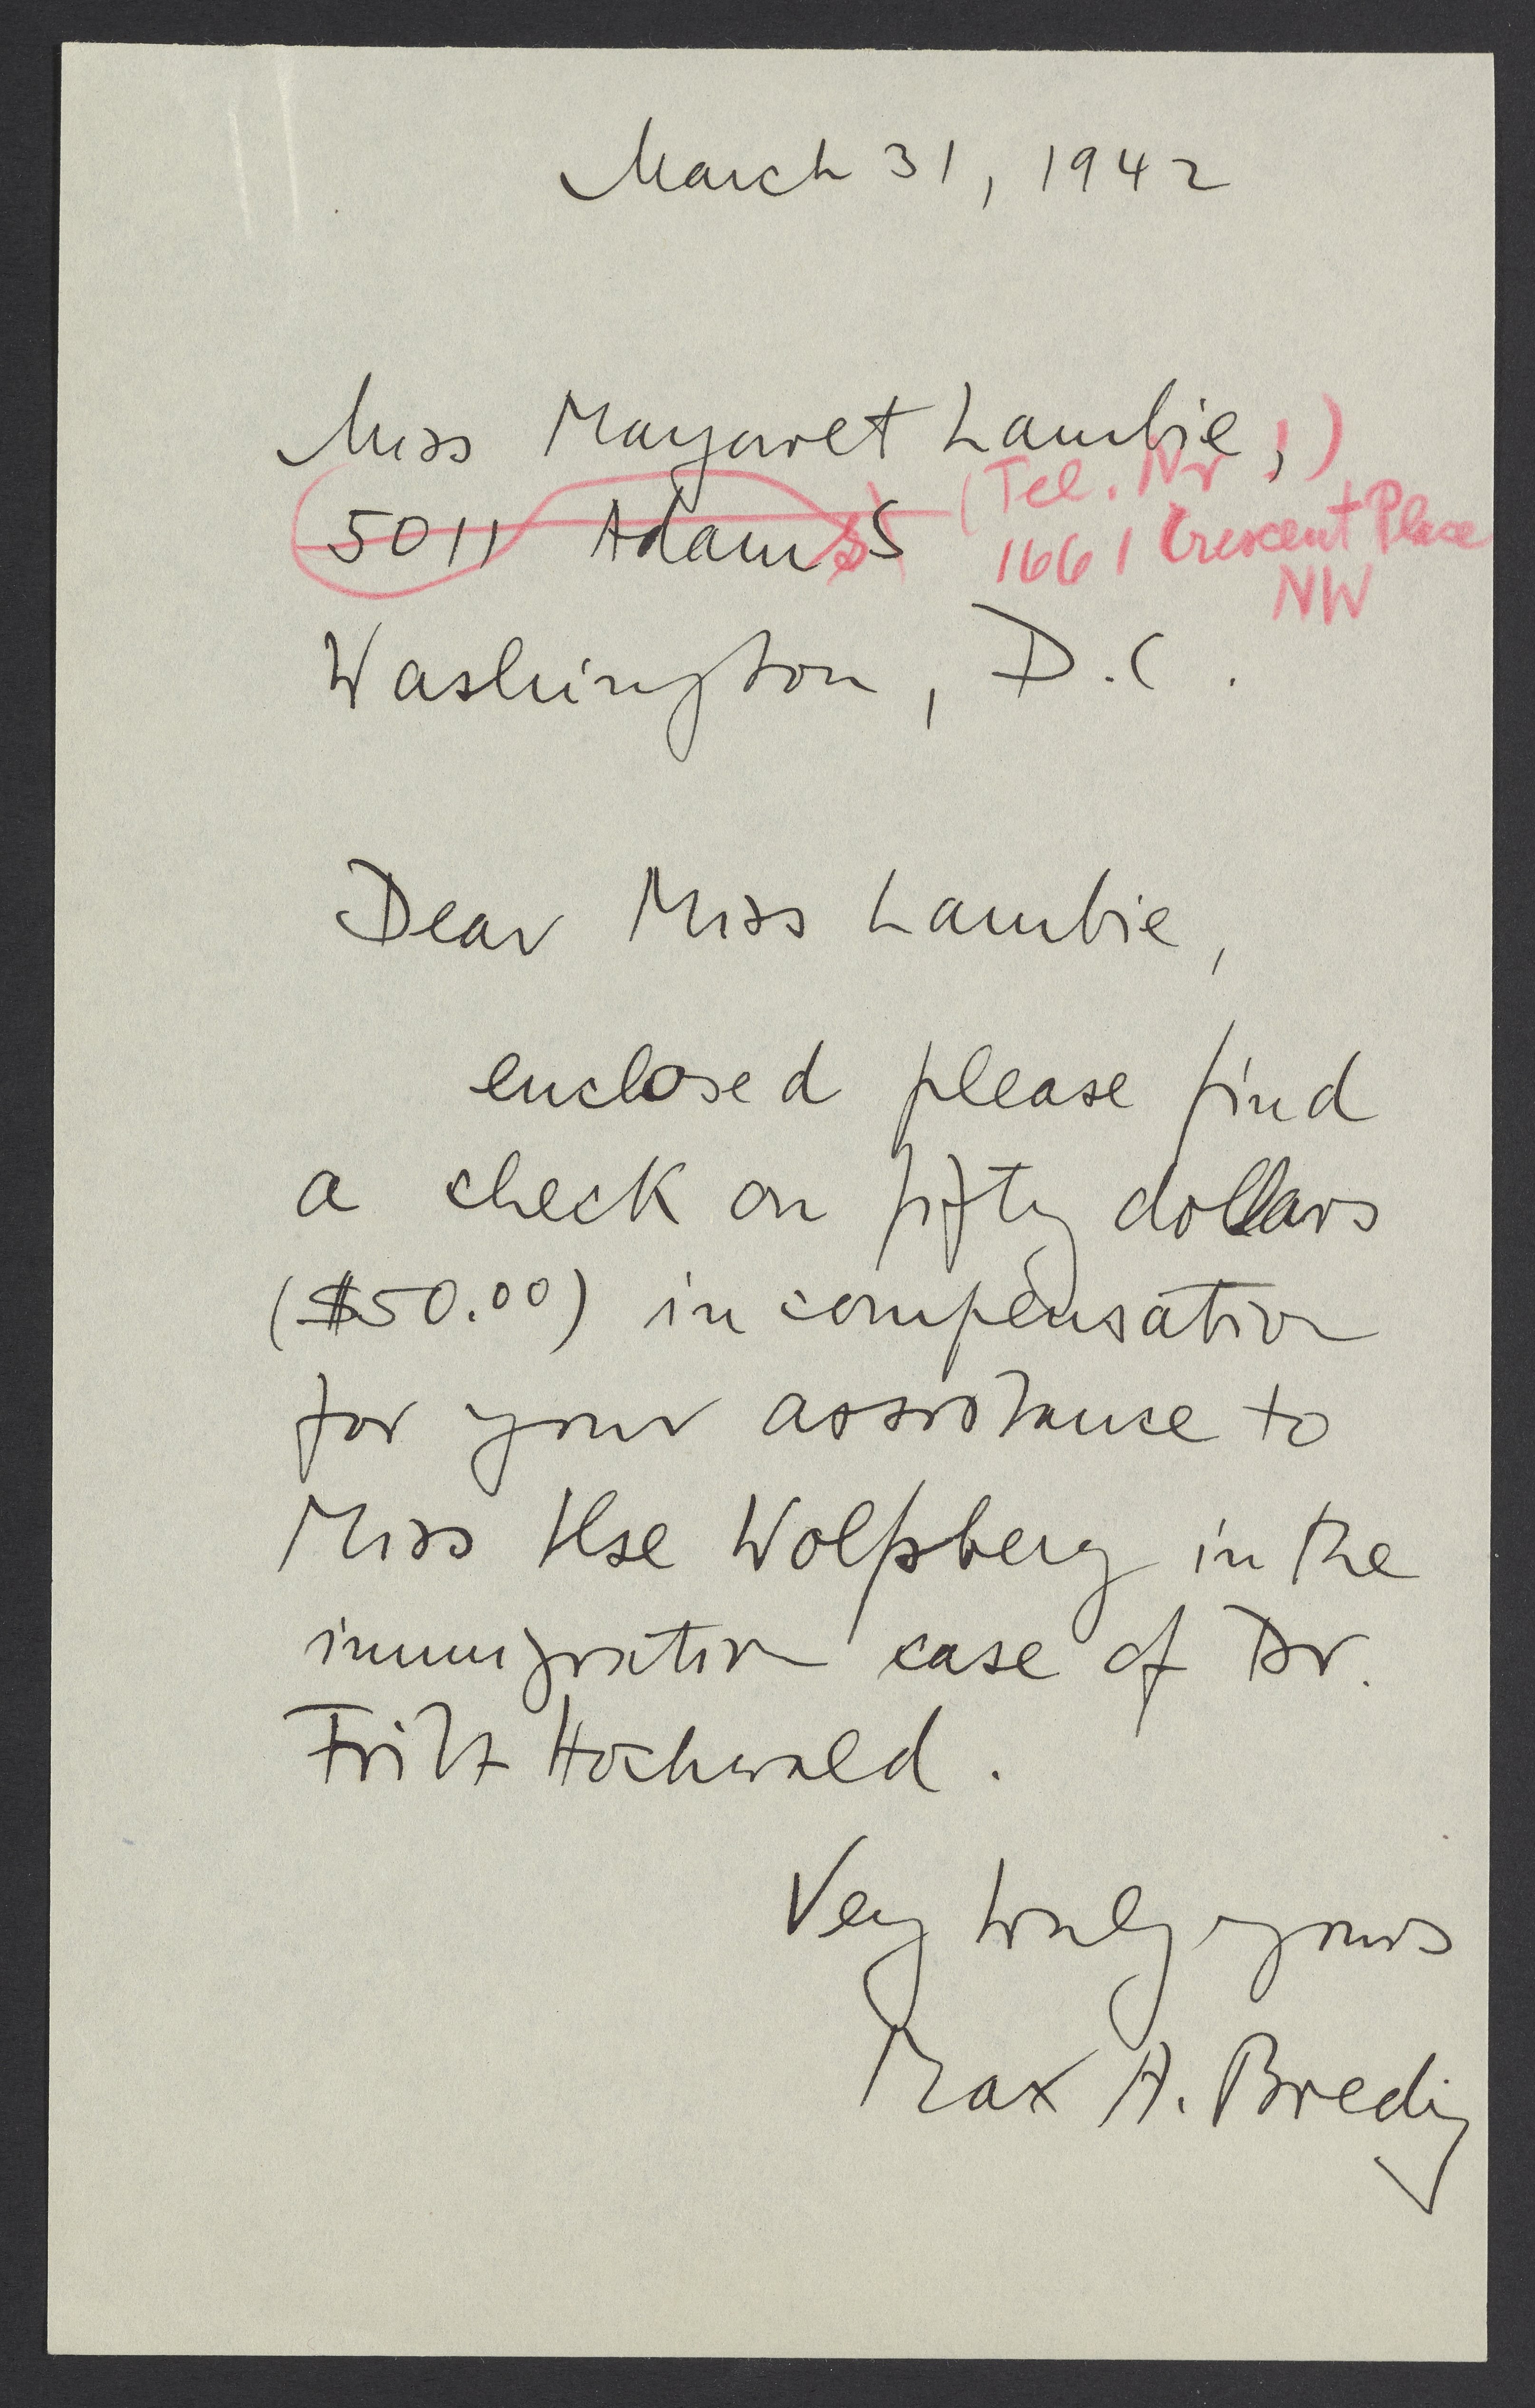 March 31, 1942
Miss Margaret Lambie,
(Tel. Nr !)
5011 Adams S
1661 Crescent Place
NW
Washington, D.C.
Dear Miss Lambie,
enclosed please find
a check on fifty dollars
($50.00) in compensation
for your assistance to
Miss Ilse Wolfsberg in the
immigration case of Dr.
Fritz Hochwald.
Very truly yours
Max A. Bredig